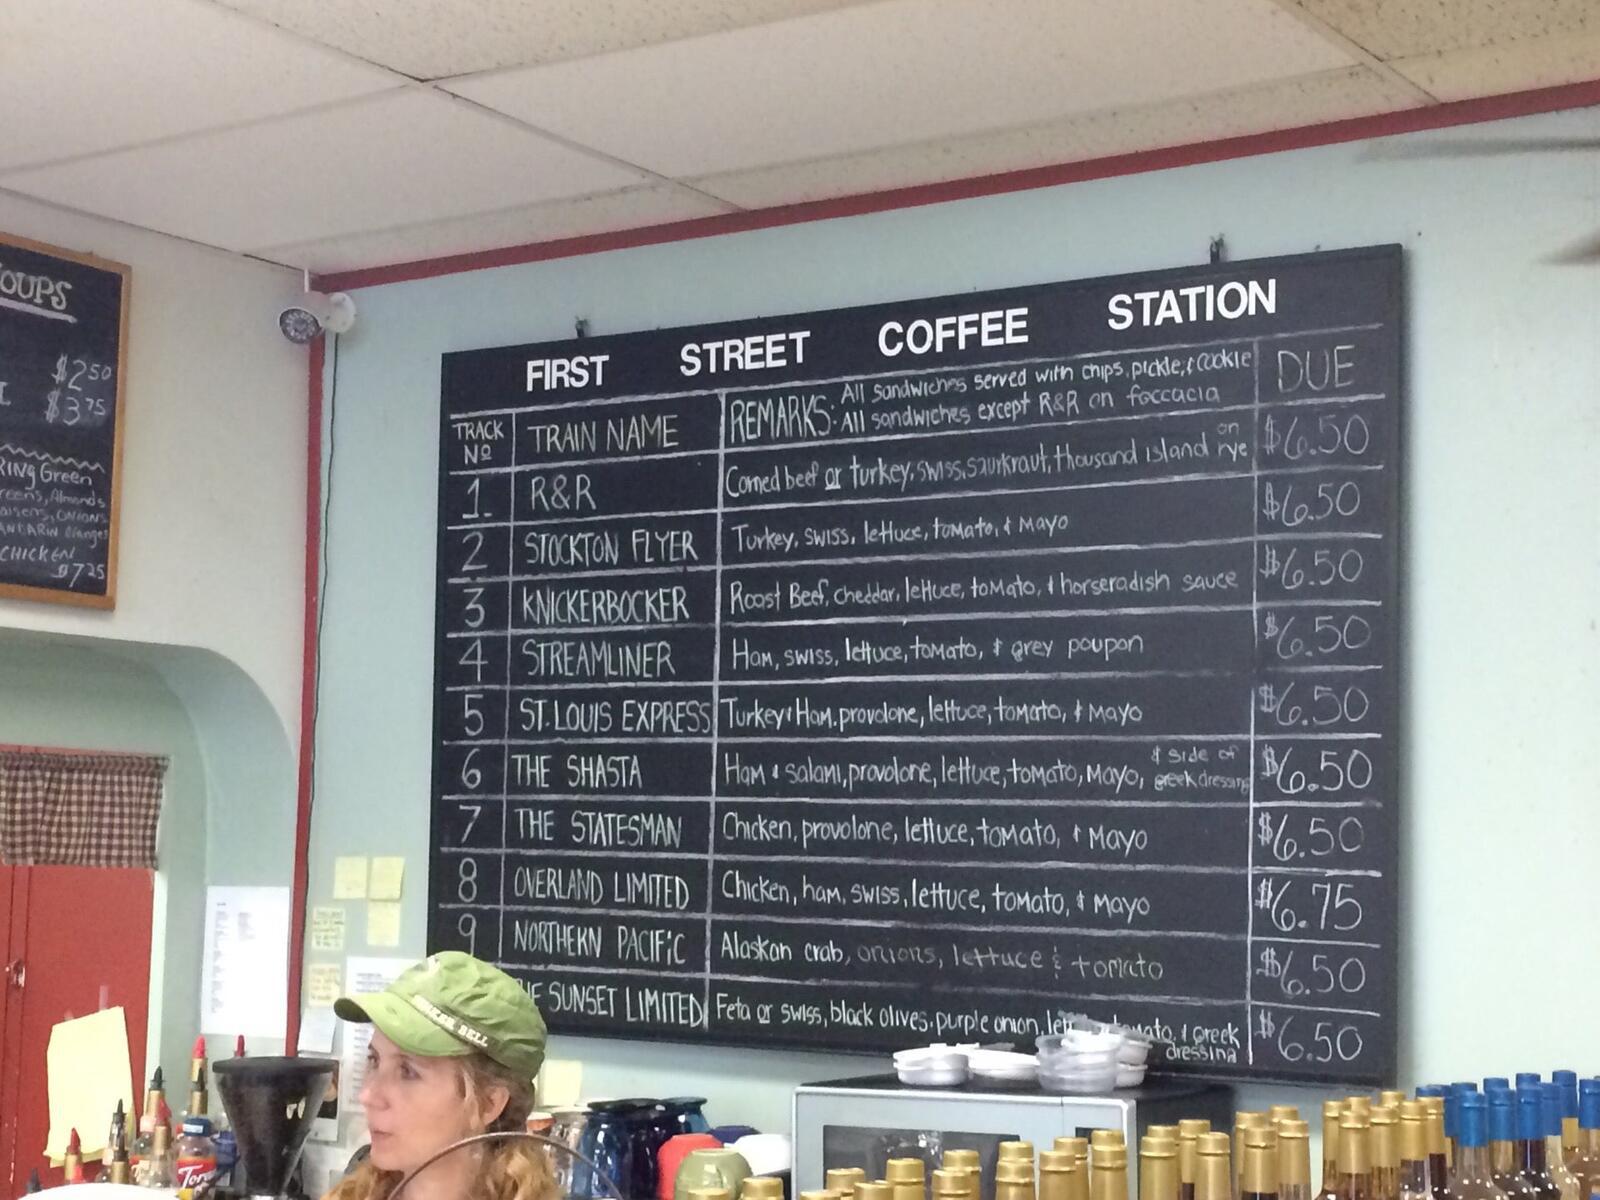 OUPS
$2.50
$3.75
RING Green
reens, Almonds
aisens, ONIONS
ANDARIN Oranges
CHICKEN
$7.25
FIRST STREET COFFEE STATION
TRACK Nº TRAIN NAME REMARKS: All sandwiches served with chips, pickle, & cookie DUE
All sandwiches except R&R on foccacia
1. R&R Corned beef or turkey, swiss, saurkraut, thousand island on rye $6.50
2 STOCKTON FLYER Turkey, swiss, lettuce, tomato, & Mayo $6.50
3 KNICKERBOCKER Roast Beef, cheddar, lettuce, toMato, & horseradish sauce $6.50
4 STREAMLINER Ham, swiss, lettuce, tomato, & grey poupon $6.50
5 ST. LOUIS EXPRESS Turkey & Ham, provolone, lettuce, tomato, & Mayo $6.50
6 THE SHASTA Ham & salami, provolone, lettuce, tomato, Mayo, & side of greek dressing $6.50
7 THE STATESMAN Chicken, provolone, lettuce, tomato, & Mayo $6.50
8 OVERLAND LIMITED Chicken, ham, swiss, lettuce, tomato, & Mayo $6.75
9 NORTHERN PACIFIC Alaskan crab, onions, lettuce & tomato $6.50
HE SUNSET LIMITED Feta or swiss, black olives, purple onion, let tomato, & Greek dressing $6.50
BELL
Tor